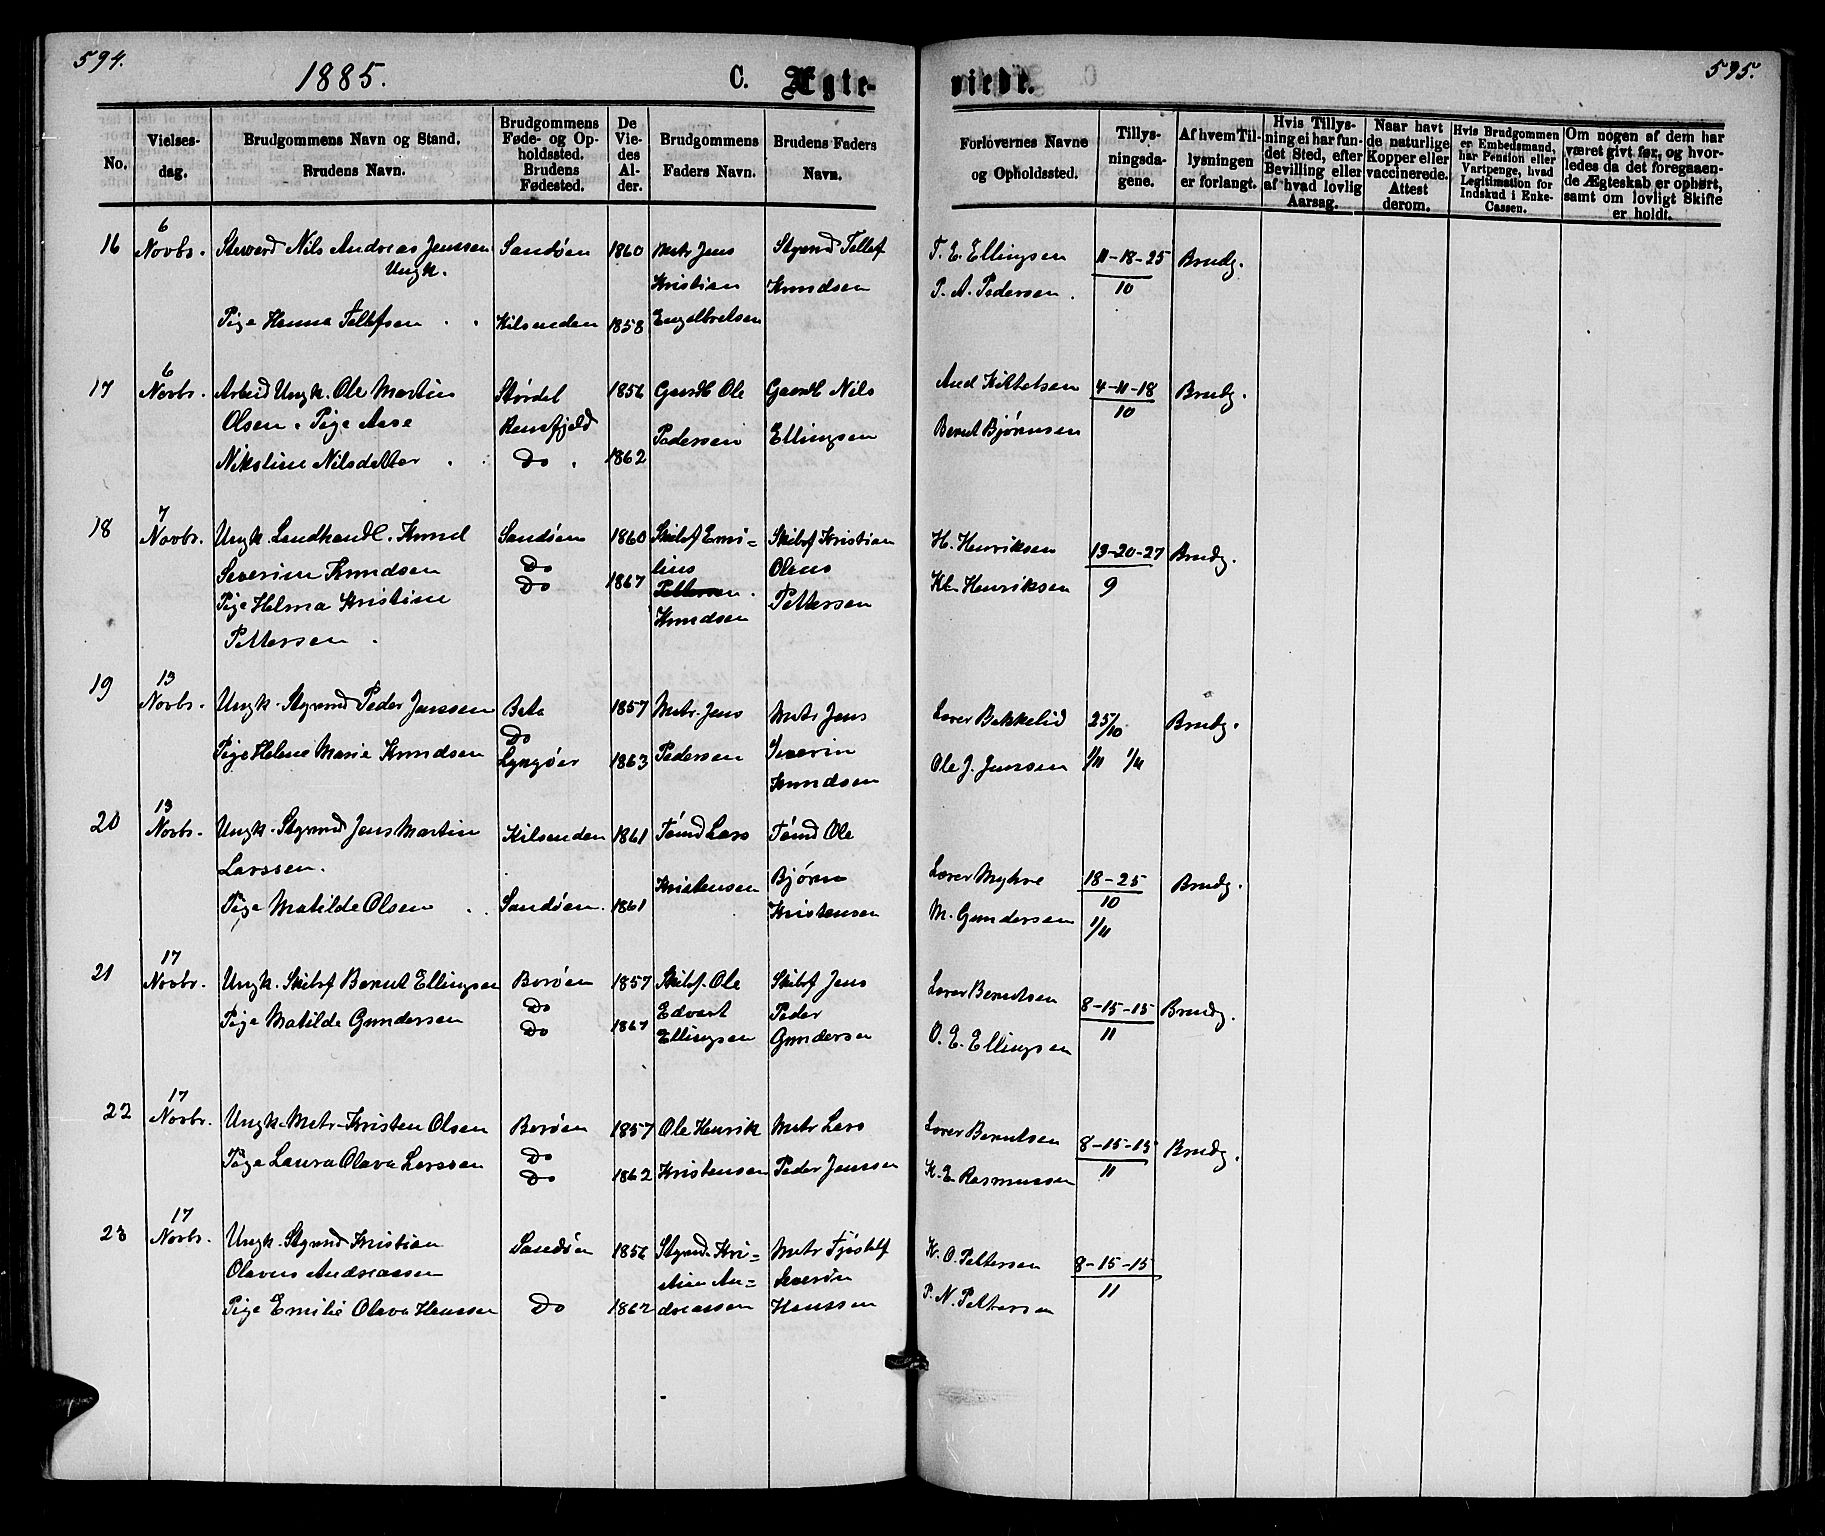 594.
1885.
C. Ægte-
No.
Vielses-
dag.
Brudgommens Navn og Stand.
Brudens Navn.
Brudgommens
Føde- og Op-
holdssted.
Brudens
Fødested.
De
Vie-
des
Al-
der.
Brudgommens
Faders Navn.
Brudens Faders
Navn.
16
6
Novbr.
Steward Nils Andreas Jenssen
Ungk.
Pige Hanna Tellefsen
Sandøen
Kilsunden
1860
1858
Mtr Jens
Kristian
Engelbretsen
Styrmd Tellef
Knudsen
17
6
Novbr.
Arbeid Ungk. Ole Martin
Olsen. Pige Aase
Nikoline Nilsdatter
Størdal
Rensfjeld
Do
1856
1862
Gaardb Ole
Pedersen
Gaardb Nils
Ellingsen
18
7
Novbr.
Ungk. Landhandl. Knud
Severin Knudsen
Pige Helma Kristine
Pettersen
Sandøen
Do
Do
1860
1867
Skibsf Emi=
lius
Pettersen.
Knudsen
Skibsf Kristian
Olaus
Pettersen
19
13
Novbr.
Ungk. Styrmd Peder Jenssen
Pige Helene Marie Knudsen
Bota
Do
Lyngøer
1857
1863
Mtr. Jens
Pedersen
Mtr Jens
Severin
Knudsen
20
13
Novbr.
Ungk. Styrmd Jens Martin
Larssen.
Pige Matilde Olsen
Kilsunden
Sandøen.
1861
1861
Tømd Lars
Kristensen
Tømd Ole
Bjørn
Kristensen
21
17
Novbr.
Ungk. Skibsf Bernt Ellingsen
Pige Matilde Gundersen
Borøen
Do
Do
1857
1867
Skibsf. Ole
Edvart
Ellingsen
Skibsf Jens
Peder
Gundersen
22
17
Novbr.
Ungk. Mtr. Kristen Olsen
Pige Laura Olava Larssen
Borøen
Do
Do
1857
1862
Ole Henrik
Kristensen
Mtr Lars
Peder Jenssen
23
17
Novbr.
Ungk. Styrmd Kristian
Olavus Andreassen
Pige Emilie Olava Hanssen
Sandøen
Do
1856
1862
Styrmd. Kri=
stian An=
dreassen
Mtr Fjøstelf
Severin
Hanssen
595.
viede.
Forlovernes Navne
og Opholdssted.
Tillys-
ningsda-
gene.
Af hvem Til-
lysningen
er forlangt.
Hvis Tillys-
ning ei har fun-
det Sted, efter
Bevilling eller
af hvad lovlig
Aarsag.
Naar havt
de naturlige
Kopper eller
vaccinerede.
Attest
derom.
Hvis Brudgommen
er Embedsmand,
har Pension eller
Vartpenge, hvad
Legitimation for
Indskud i Enke-
Cassen.
Om nogen af dem har
været givt før, og hvor-
ledes da det foregaaen-
de Ægteskab er ophørt,
samt om lovligt Skifte
er holdt.
T. E. Ellingsen
P. A. Pedersen.
11-18-25
10
Brudg.
And Kittelsen
Bernt Bjørnsen
4-11-18
10
Brudg.
H. Henriksen
Kl- Henriksen
13-20-27
9
Brudg.
Lærer Bekkelid
Ole J. Jenssen
25/10
1/11 1/11
Brudg.
Lærer Myhre
M. Gundersen
18-25
10
1/11
Brudg.
Lærer Berntsen
O. E. Ellingsen
8-15-15
11
Brudg.
Lærer Berntsen
K. E Rasmussen
8-15-15
11
Brudg.
K. O. Pettersen
P. N. Pettersen
8-15-15
11